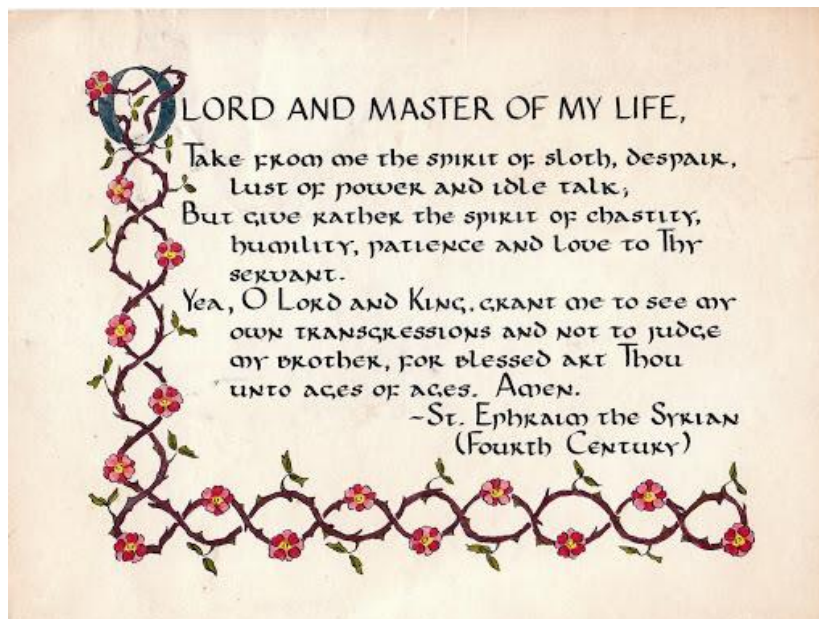 O LORD AND MASTER OF MY LIFE,
Take from me the spirit of sloth, despair,
lust of power and idle talk;
But give rather the spirit of chastity,
humility, patience and love to Thy
servant.
Yea, O Lord and King, grant me to see my
own transgressions and not to judge
my brother, for blessed art Thou
unto ages of ages. Amen.
-St. Ephraim the Syrian
(Fourth Century)